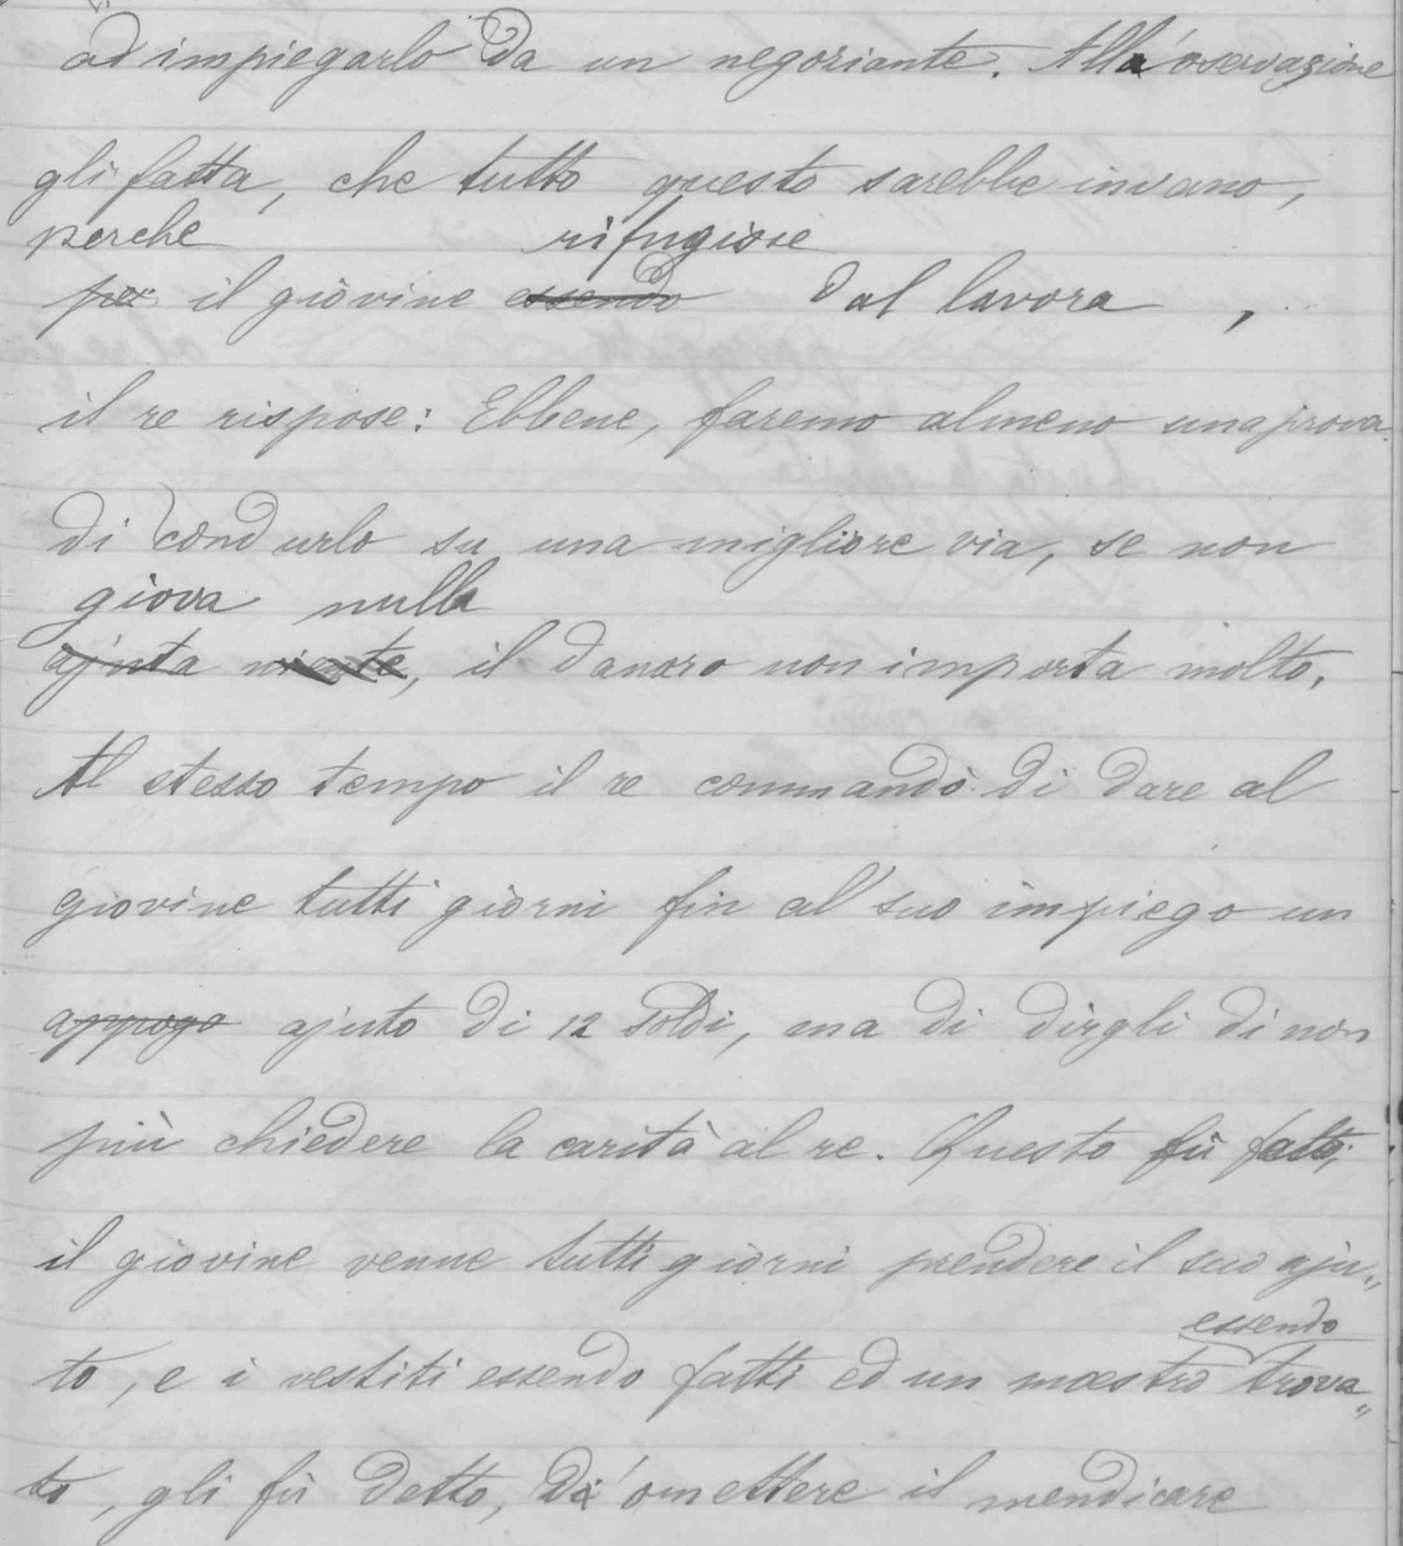 ad impiegarlo da un negoziante. Alla'oservazione
gli fatta, che tutto questo sarebbe invano,
perche rifugiose
per il giovine essendo dal lavora ,
il re rispose: Ebbene, faremo almeno una prova
di condurlo su una migliore via, se non
giova nulla
ajuta niente, il danaro non importa molto.
Al stesso tempo il re commandò di dare al
giovine tutti giorni fin al' suo impiego un
appogo ajuto di 12 soldi, ma di dirgli di non
più chiedere la carità al re. Questo fù fatto;
il giovine venne tutti giorni prendere il suo aju„
essendo
to, e i vestiti essendo fatti ed un maestro trova„
to, gli fù detto, di' omettere il mendicare